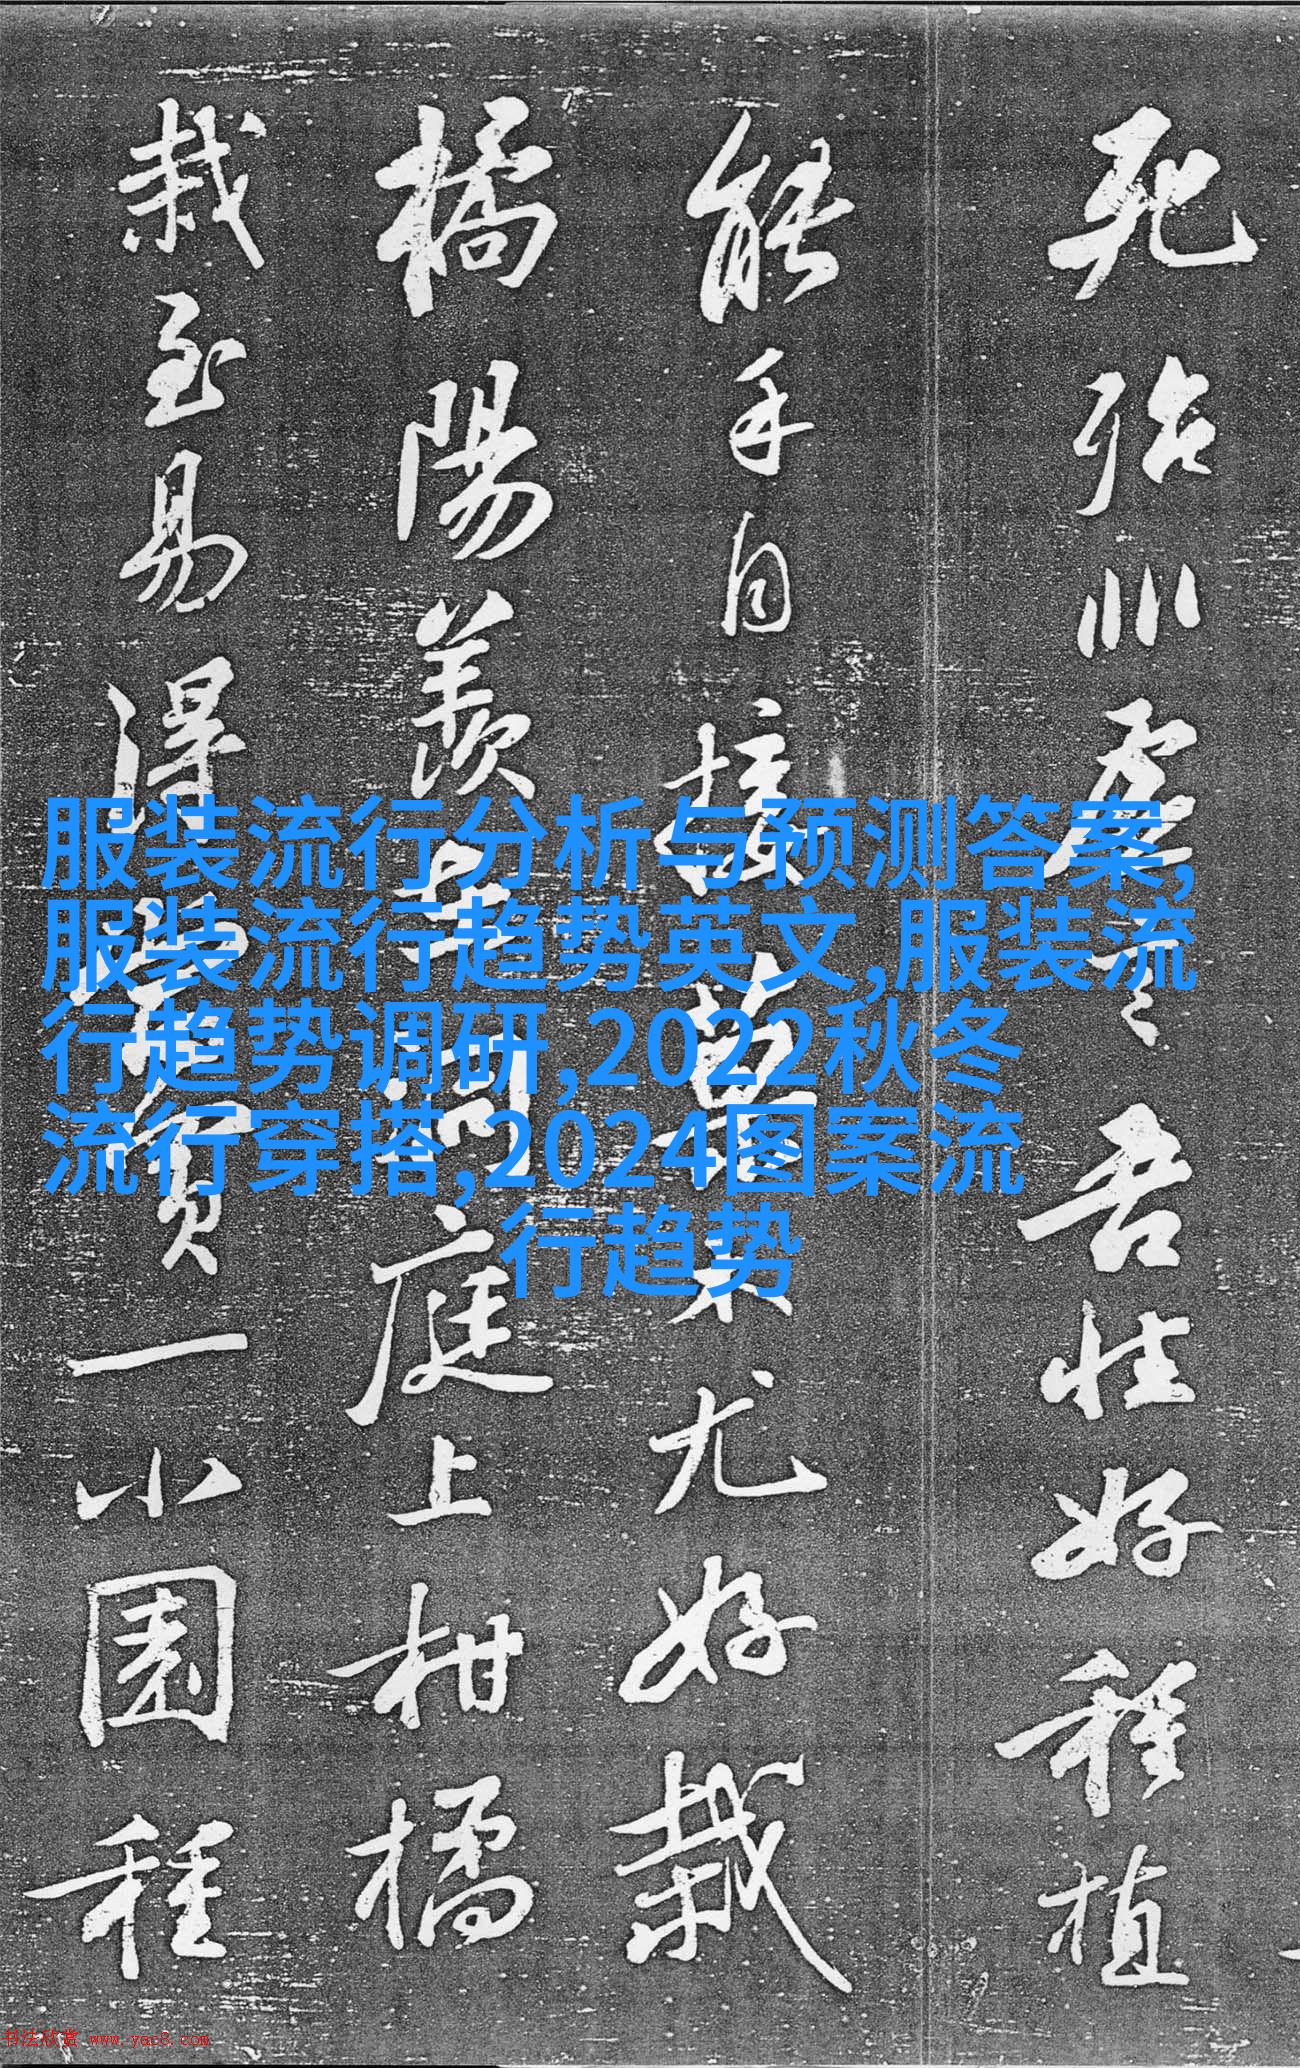 死殆非虛言吾性好種植
能手自接菓木尤好栽
橘陽羨在洞庭上柑橘
栽至易得當買一小園種
服装流行分析与预测答案,
服装流行趋势英文,服装流
行趋势调研,2022秋冬
流行穿搭,2024图案流
行趋势
书法欣赏 www.yac8.com